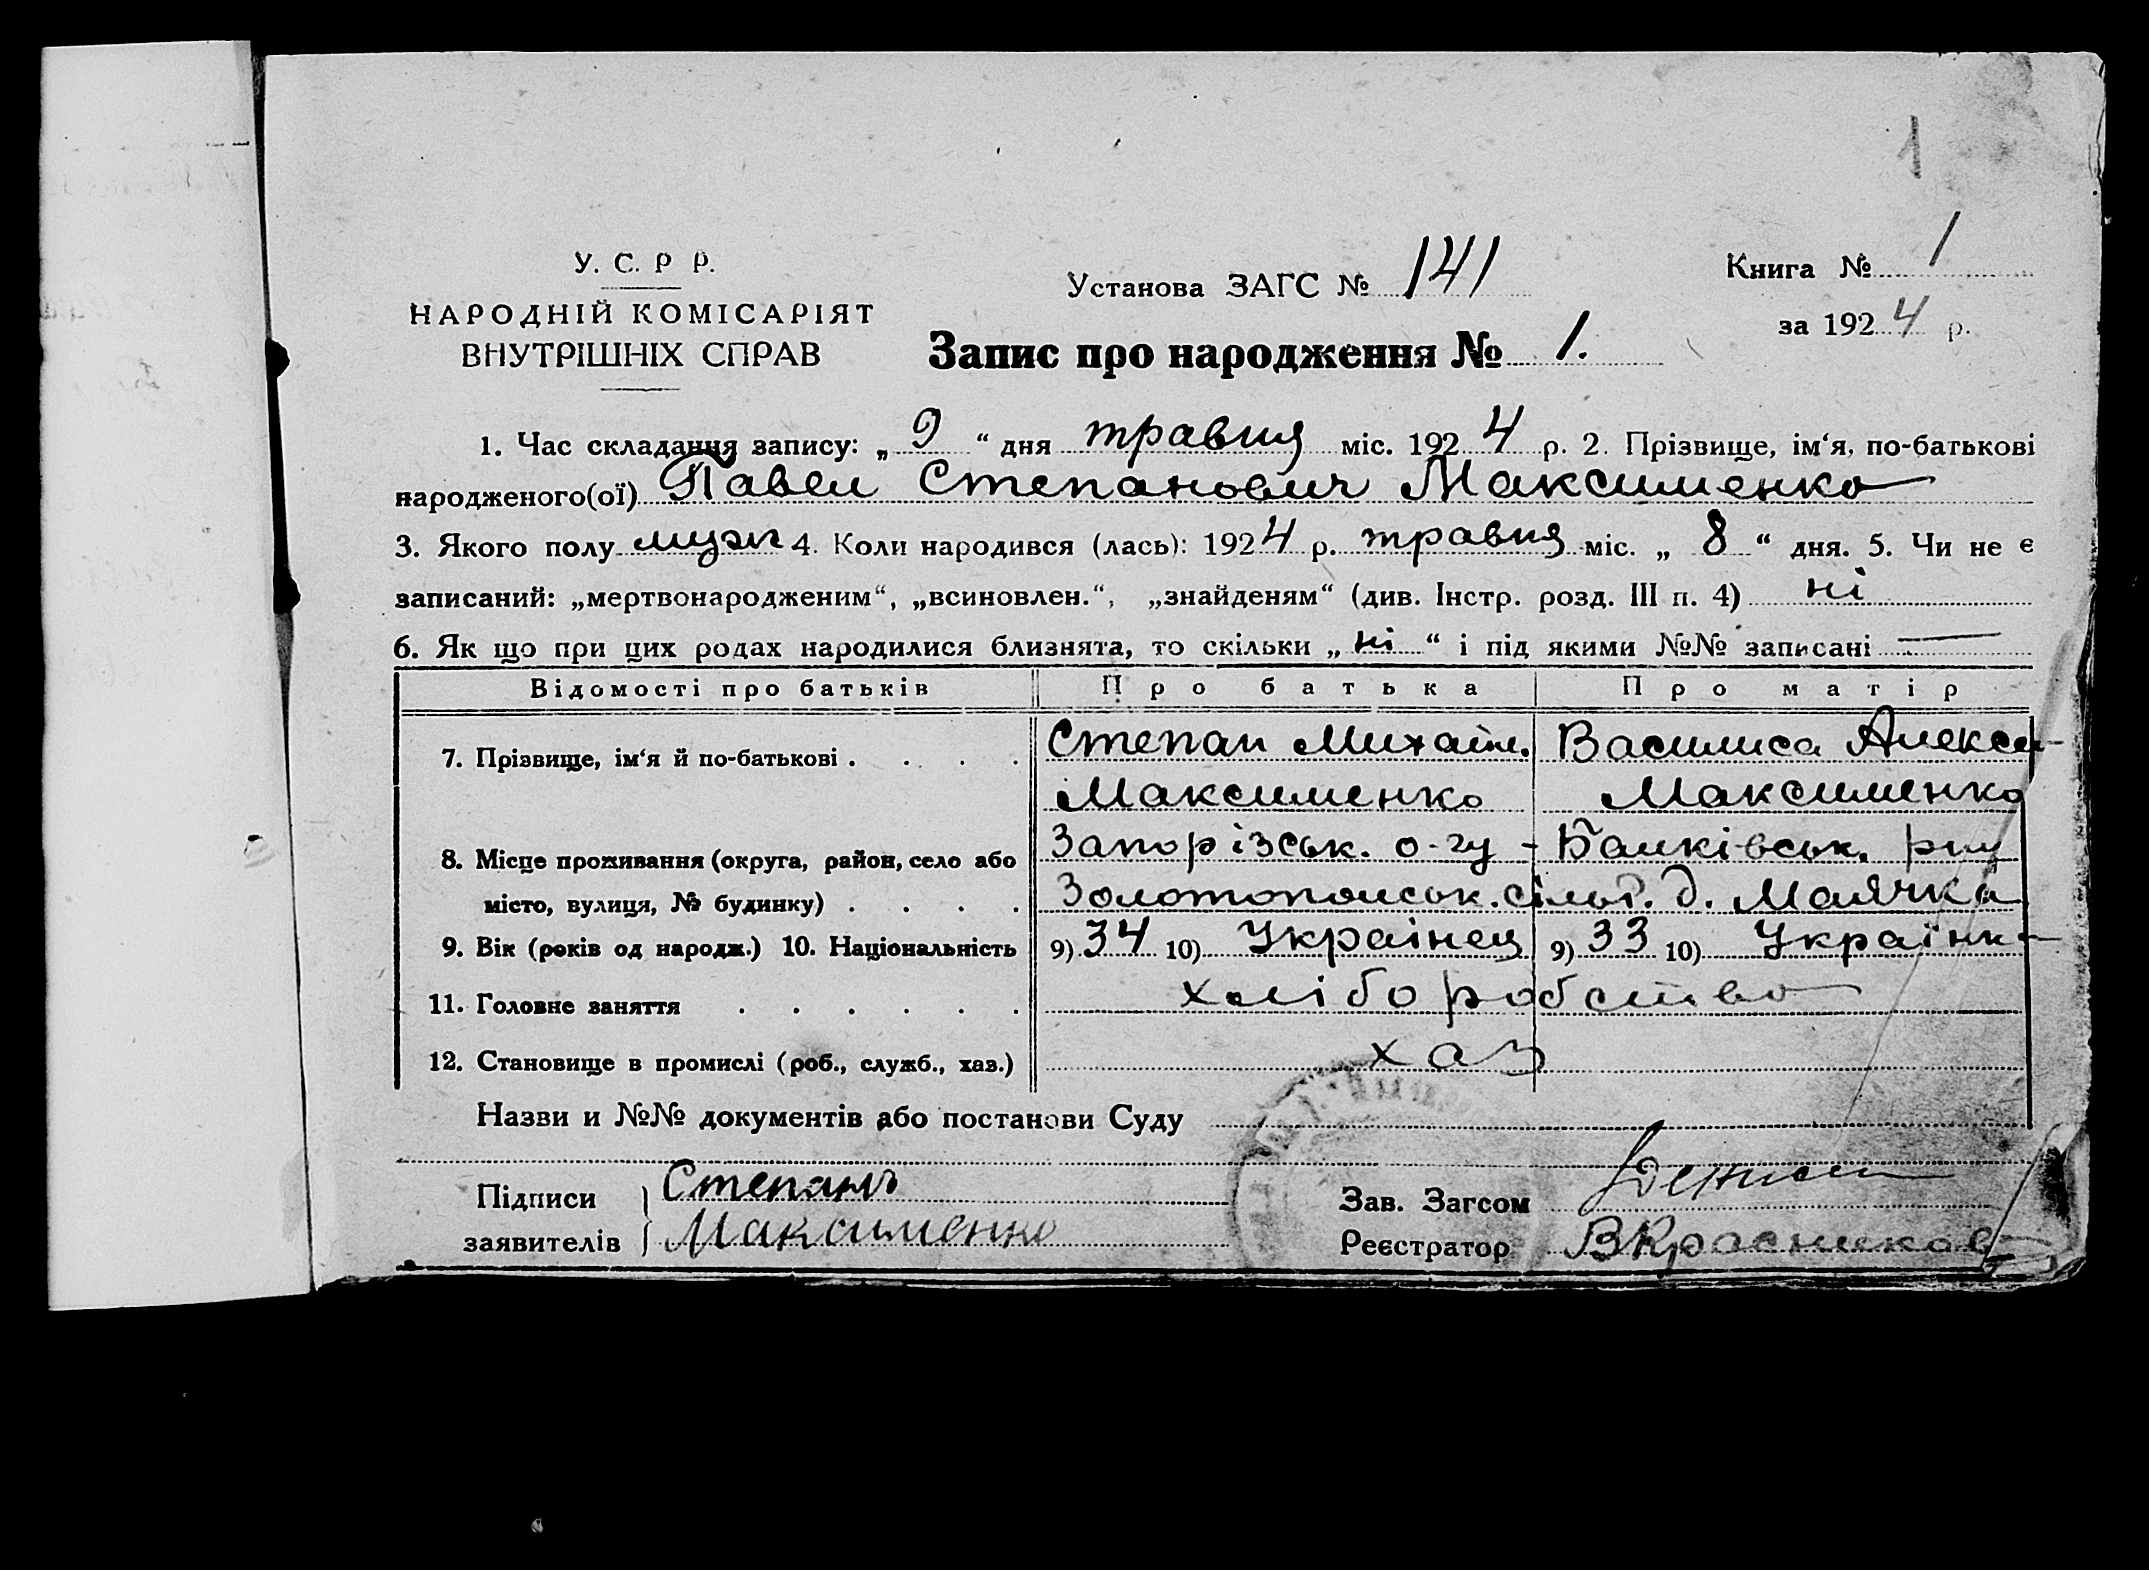 1
У. С. Р Р.
НАРОДНІЙ КОМІСАРІЯТ
ВНУТРІШНІХ СПРАВ
Установа ЗАГС № 141
Книга № 1
за 1924 р.
Запис про народження № 1.
1. Час складання запису: „9“ дня травня міс. 1924 р. 2. Прізвище, ім‘я, по-батькові
народженого(ої) Павел Степанович Максименко
3. Якого полу муж 4. Коли народився (лась): 1924 р. травня міс. „8“ дня. 5. Чи не є
записаний: „мертвонародженим“, „всиновлен.“, „знайденям“ (див. Інстр. розд. III п. 4) ні
6. Як що при цих родах народилися близнята, то скільки „ні“ і під якими №№ записані —
Відомості про батьків Про батька Про матір
7. Прізвище, ім‘я й по-батькові . . . . Степан Михайл. Василиса Алекс
Максименко Максименко
8. Місце проживання (округа, район, село або Запорізськ. о-гу - Балківськ. р-ну
місто, вулиця, № будинку) . . . . Золотопольськ. сільР. д. Маячка
9. Вік (років од народж.) 10. Національність 9) 34 10) Українец 9) 33 10) Українк
11. Головне заняття . . . . . . хліборобство
12. Становище в промислі (роб., служб., хаз.) хаз
Назви и №№ документів або постанови Суду
Підписи Степанъ Зав. Загсом
заявителів Максименко Реєстратор ВКрасников